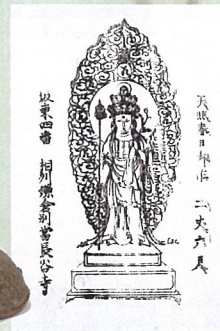 天照春日御作 二丈六尺
坂東四番 相刕鎌倉別當長谷寺